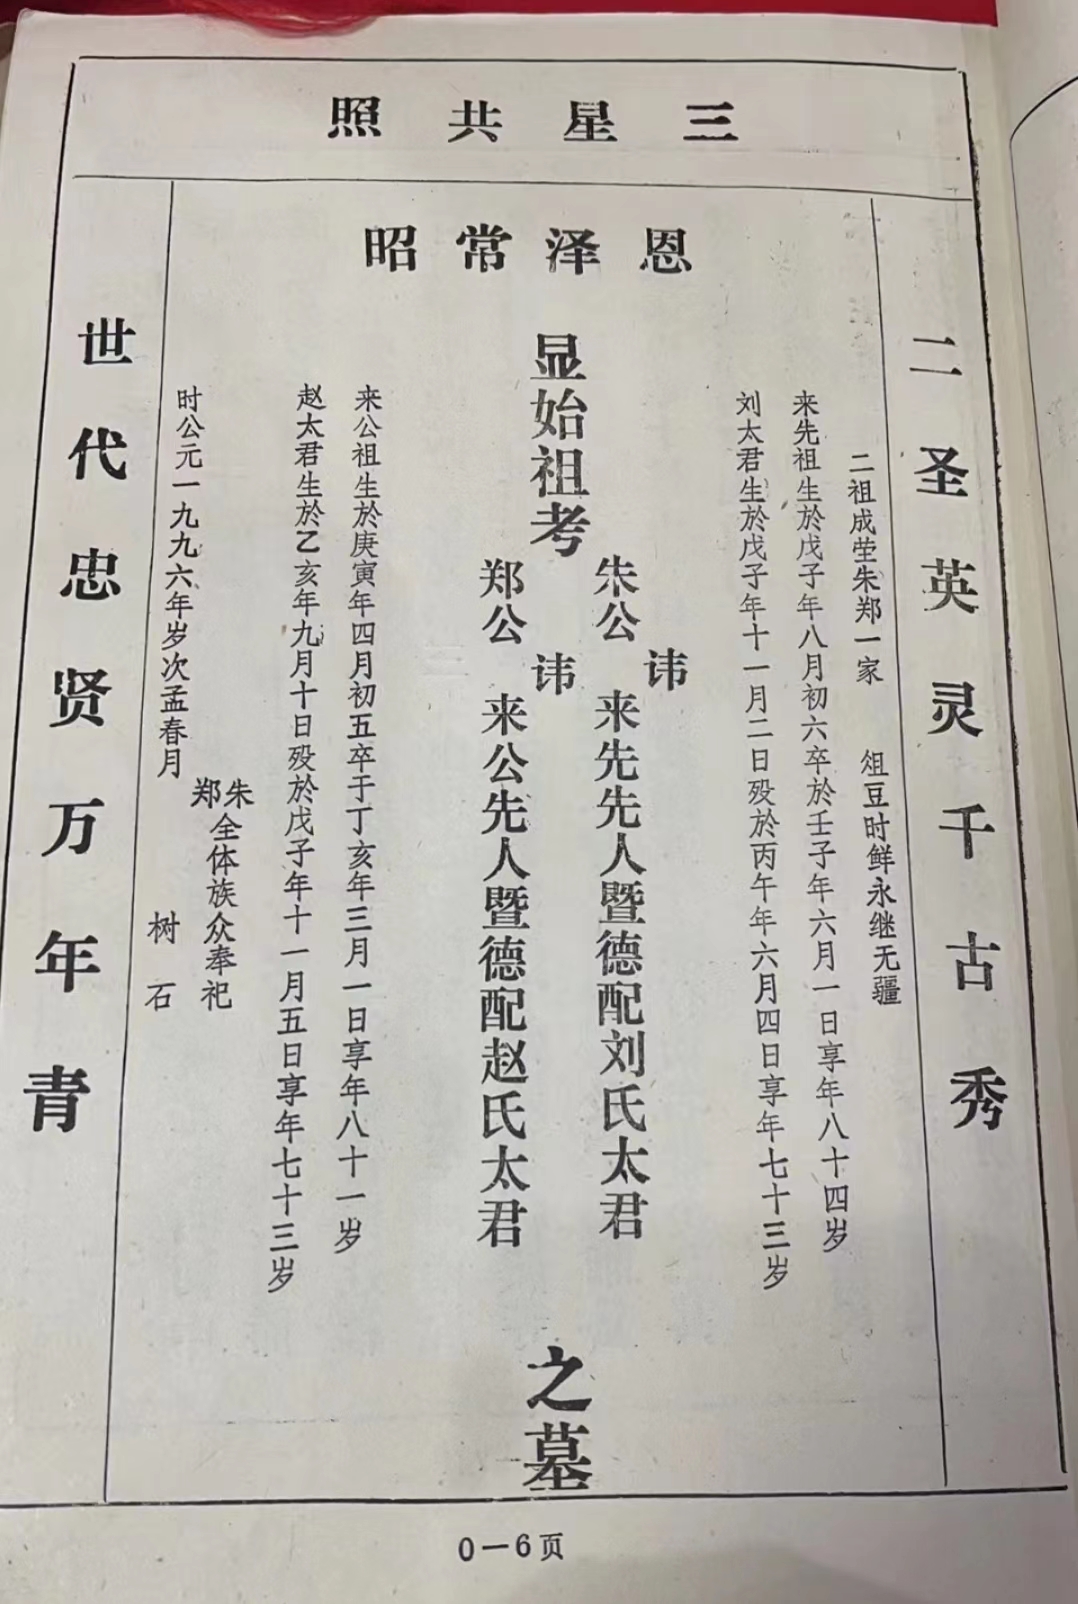 三星共照
恩泽常昭
二圣英灵千古秀
二祖成茔朱郑一家 俎豆时鲜永继无疆
来先祖生於戊子年八月初六卒於壬子年六月一日享年八十四岁
刘太君生於戊子年十一月二日殁於丙午年六月四日享年七十三岁
显始祖考
朱公讳来先先人暨德配刘氏太君
郑公讳来公先人暨德配赵氏太君
之墓
来公祖生於庚寅年四月初五卒于丁亥年三月一日享年八十一岁
赵太君生於乙亥年九月十日殁於戊子年十一月五日享年七十三岁
朱郑全体族众奉祀
时公元一九九六年岁次孟春月 树石
世代忠贤万年青
0—6页